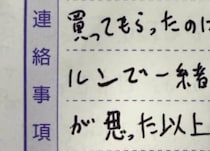 連絡事項
買ってもらったのに
ルンで一緒
が思った以上